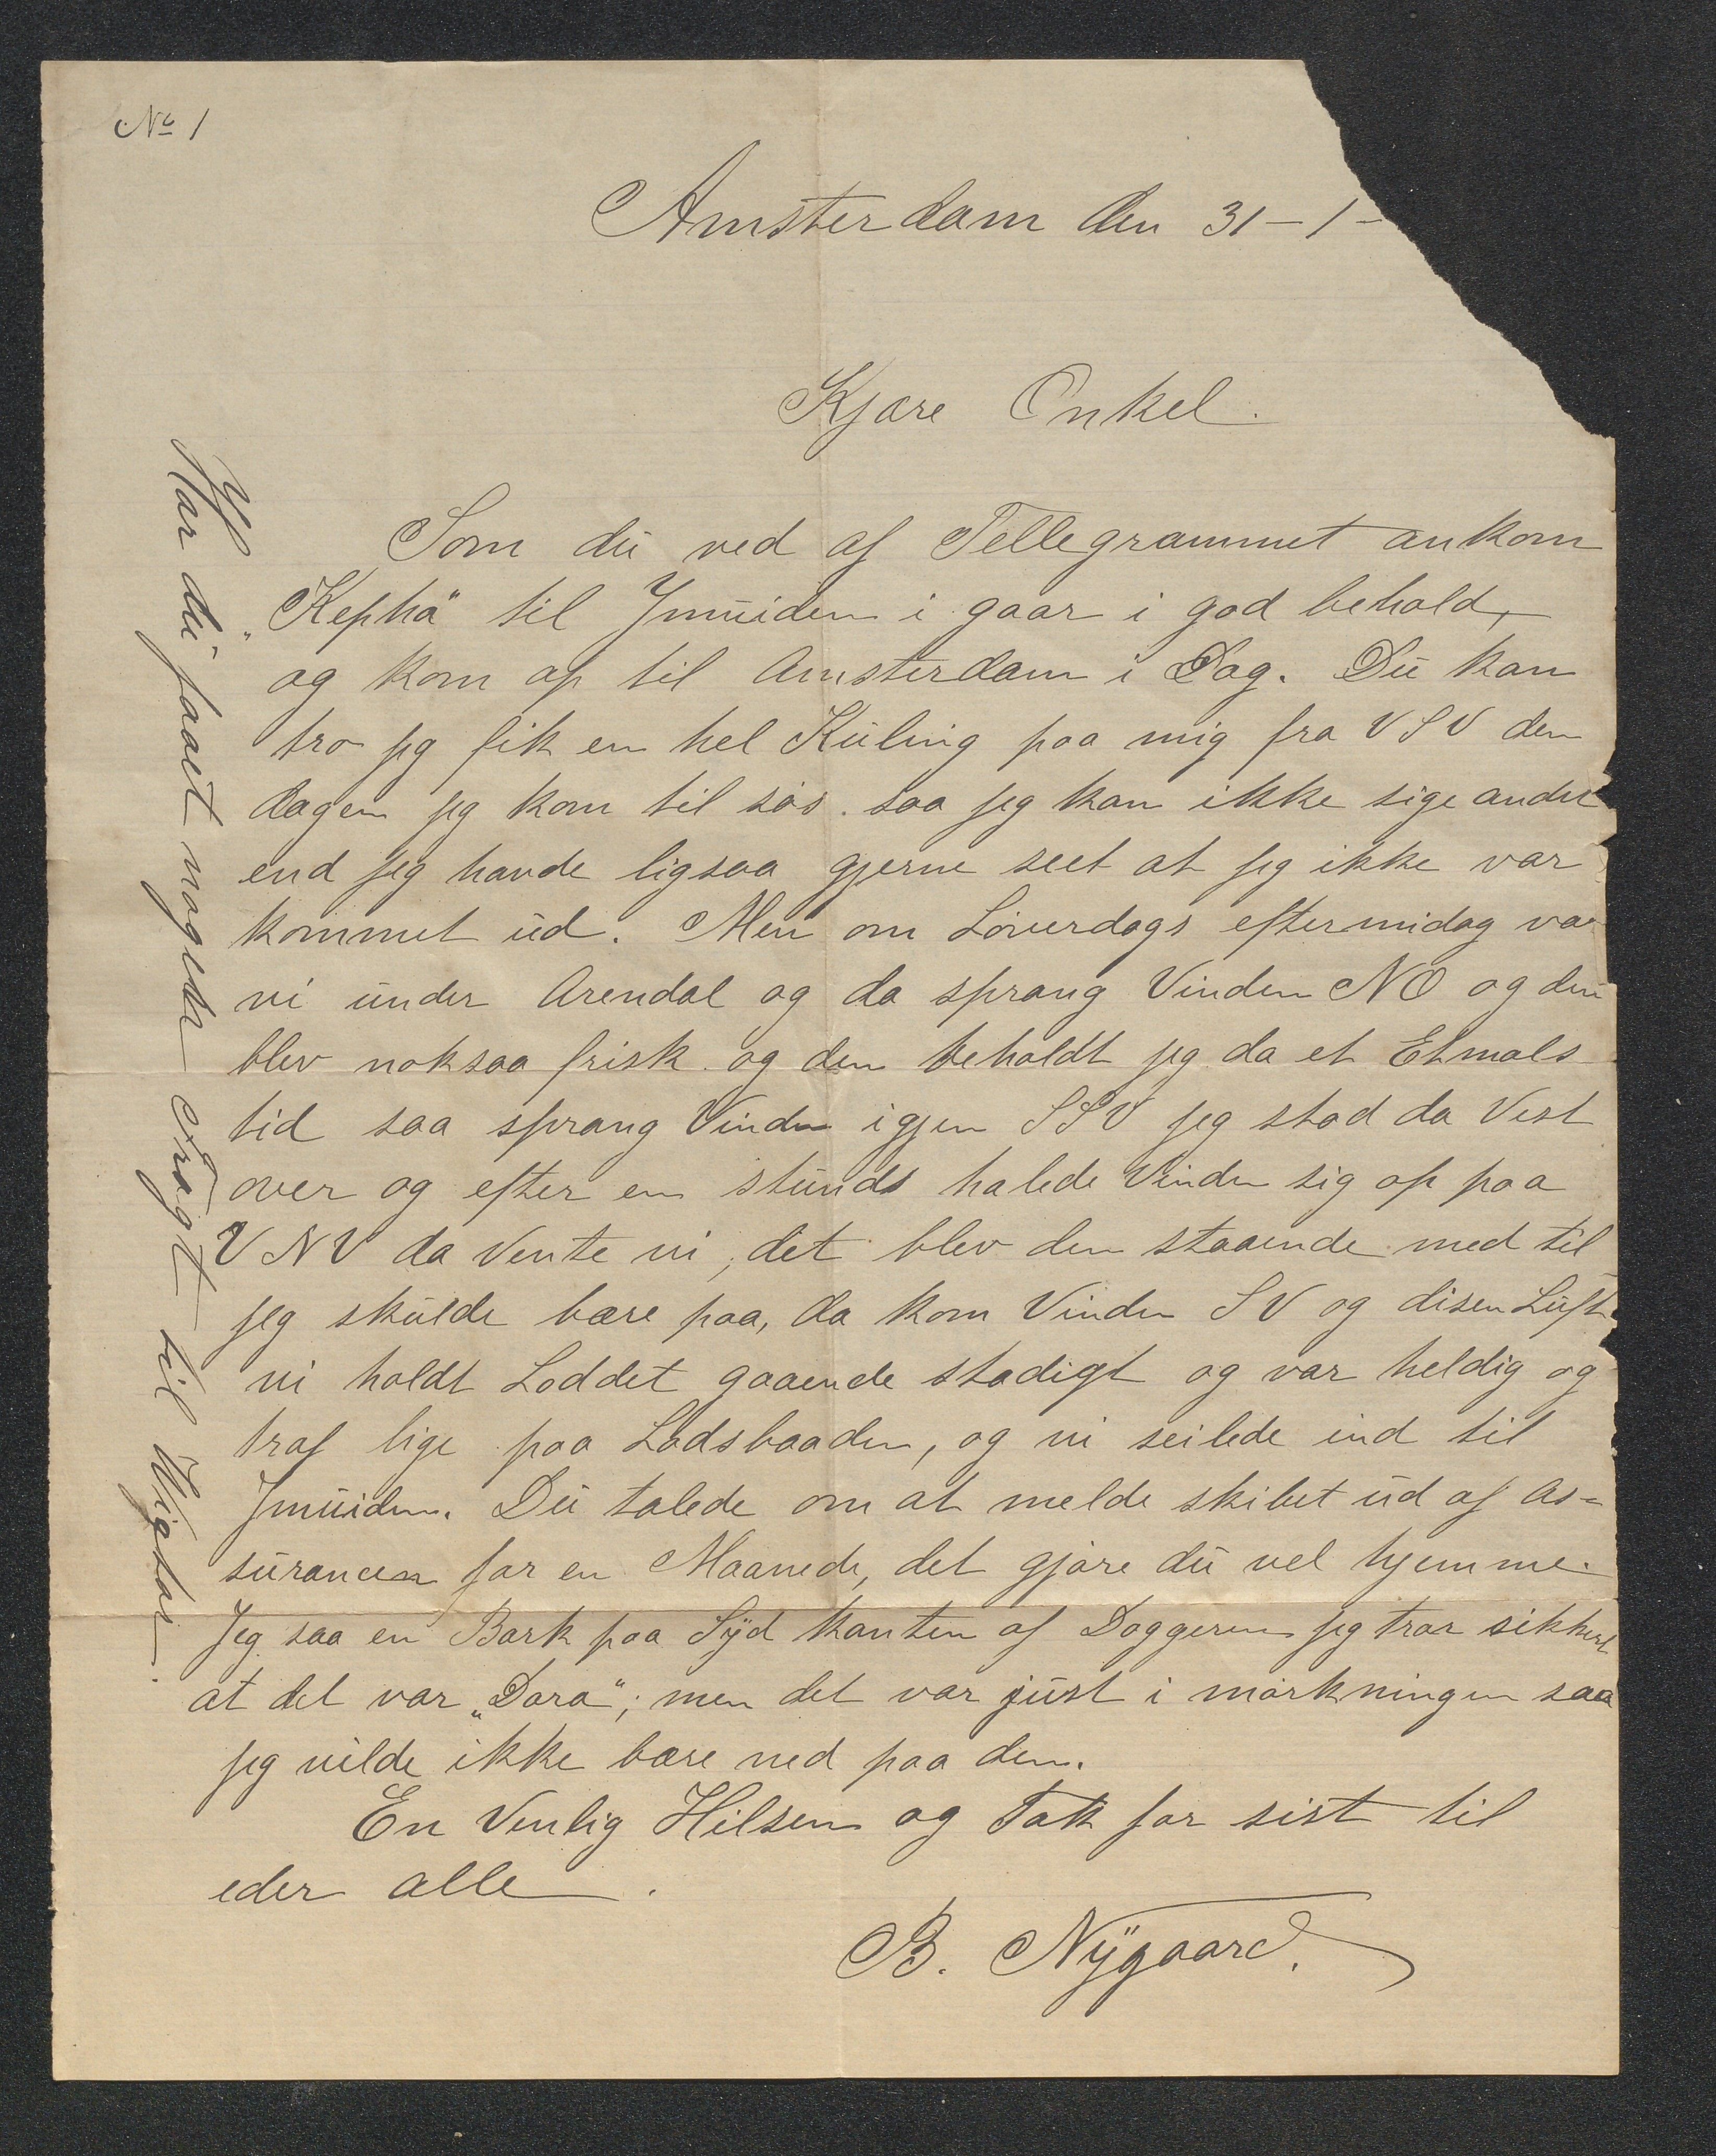 No 1
Amsterdam den 31-1-
Kjære Onkel.
Som du ved af Tellegrammet ankom
„Kepha" til Ymuiden i gaar i god behold,
og kom op til Amsterdam i Dag. Du kan
tro jeg fik en hel Kuling paa mig fra VSV den
dagen jeg kom til søs. saa jeg kan ikke sige andet
end jeg havde ligsaa gjerne seet at jeg ikke var
kommet ud. Men om Løverdags eftermidag var
vi under Arendal og da sprang Vinden NO og den
blev noksaa frisk og den beholdt jeg da et Etmals
tid saa sprang Vinden igjen SSV jeg stod da Vest
over og efter en stunds halede Vinden sig op paa
VNV da Vente vi, det blev den staaende med til
jeg skulde bære paa, da kom Vinden SV og disen Luft
vi holdt Loddet gaaende stadigt og var heldig og
traf lige paa Lodsbaaden, og vi seilede ind til
Ymuiden. Du talede om at melde skibet ud af As=
surancen for en Maanede, det gjøre du vel hjemme.
Jeg saa en Bark paa Syd kanten af Doggeren jeg tror sikkert
at det var „Dora"; men det var just i mørkningen saa
jeg vilde ikke bære ned paa den.
En Venlig Hilsen og Tak for sist til
eder alle.
B. Nygaard.
Har du faaet nogen Fragt til Wigtor.